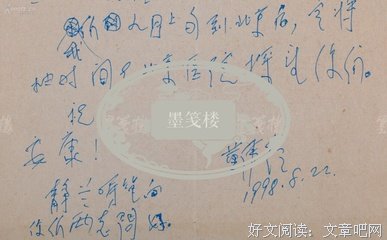 我们九月上旬到北京后,定将
抽时间去北京医院探望你们。
祝
安康!
静兰嘱笔向
你们两老问好。
1998.8.22.
墨笺楼
好文阅读:文章吧网